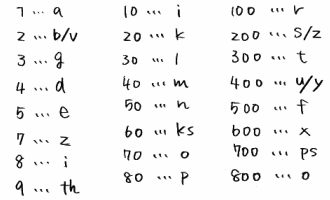 1 … a
2 … b/v
3 … g
4 … d
5 … e
7 … z
8 … i
9 … th
10 … i
20 … k
30 … l
40 … m
50 … n
60 … ks
70 … o
80 … p
100 … r
200 … s/z
300 … t
400 … u/y
500 … f
600 … x
700 … ps
800 … o